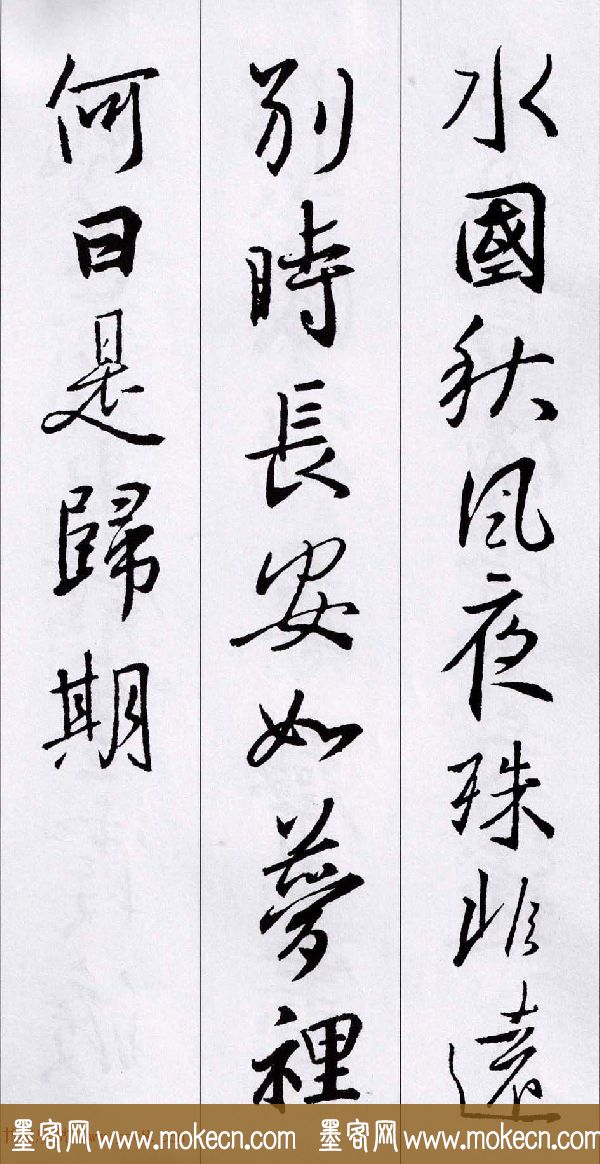 水國秋风夜殊非遠
別時長安如夢裡
何日是歸期
墨客网 www.mokecn.com 墨客网 www.mokecn.com